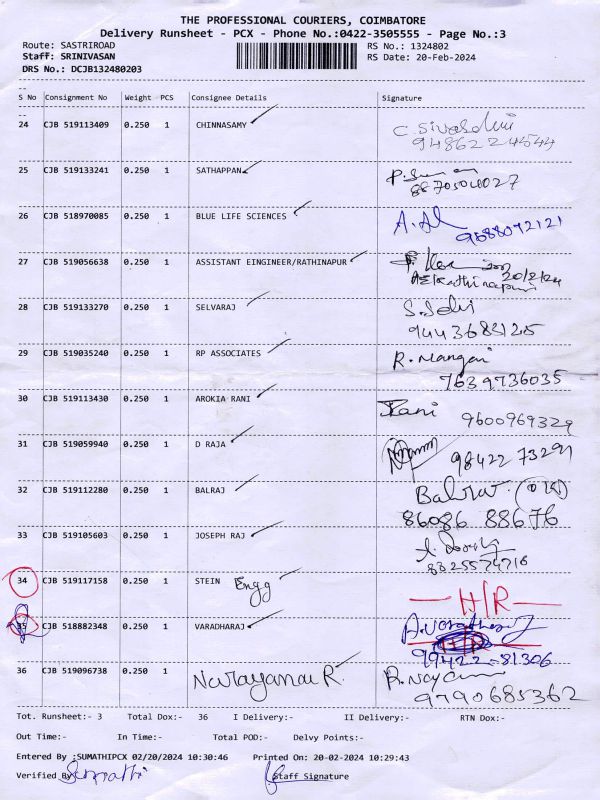 THE PROFESSIONAL COURIERS, COIMBATORE
Delivery Runsheet - PCX - Phone No.:0422-3505555 - Page No.:3
Route: SASTRIROAD RS No.: 1324802
Staff: SRINIVASAN RS Date: 20-Feb-2024
DRS No.: DCJB132480203
S No Consignment No Weight PCS Consignee Details Signature
24 CJB 519113409 0.250 1 CHINNASAMY C. Sivaselvi
9486224544
25 CJB 519133241 0.250 1 SATHAPPAN
8870504027
26 CJB 518970085 0.250 1 BLUE LIFE SCIENCES
9688072121
27 CJB 519056638 0.250 1 ASSISTANT EINGINEER/RATHINAPUR 20/2/24
AE/Rathinapuri
28 CJB 519133270 0.250 1 SELVARAJ S. Selvi
9443683125
29 CJB 519035240 0.250 1 RP ASSOCIATES R. Mangai
7639736035
30 CJB 519113430 0.250 1 AROKIA RANI Rani
9600969329
31 CJB 519059940 0.250 1 D RAJA 98422 73291
32 CJB 519112280 0.250 1 BALRAJ
86086 88676
33 CJB 519105603 0.250 1 JOSEPH RAJ
8825574716
34 CJB 519117158 0.250 1 STEIN Engg H/R
35 CJB 518882348 0.250 1 VARADHARAJ
99422-81306
36 CJB 519096738 0.250 1 Narayanan R.
9790685362
Tot. Runsheet:- 3 Total Dox:- 36 I Delivery:- II Delivery:- RTN Dox:-
Out Time:- In Time:- Total POD:- Delvy Points:-
Entered By :SUMATHIPCX 02/20/2024 10:30:46 Printed On: 20-02-2024 10:29:43
Verified By Sumathi Staff Signature